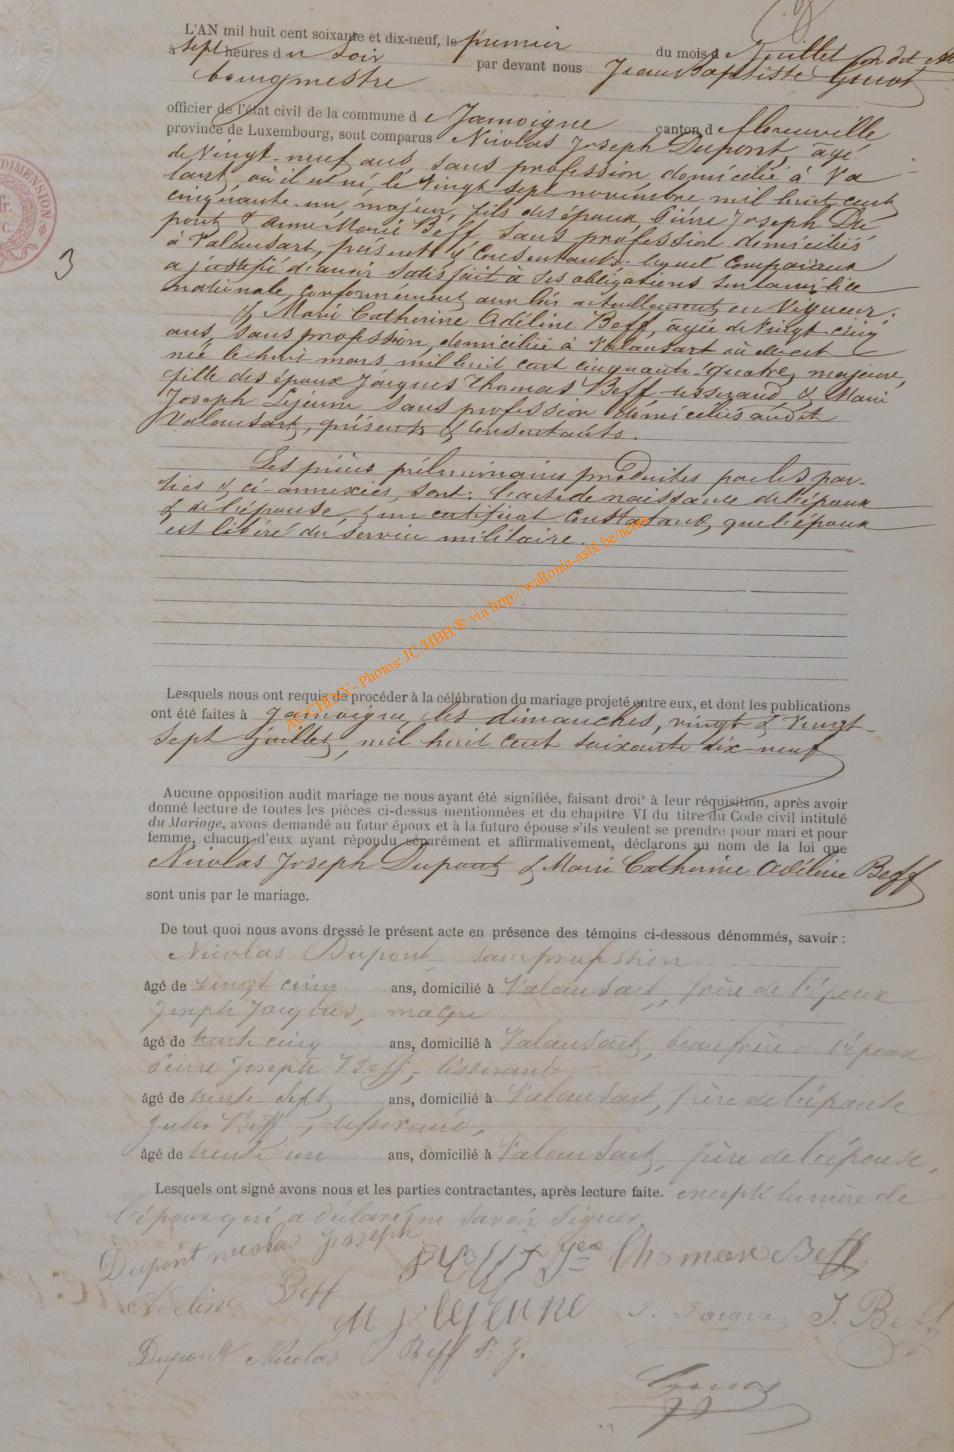 L'AN mil huit cent soixante et dix-neuf, le premier du mois d Juillet
à sept heures d u soir par devant nous Jean Baptiste Guiot
bourgmestre
officier de l'état civil de la commune d e Jamoigne canton d e florenville
province de Luxembourg, sont comparus Nicolas Joseph Dupont, âgé
de Vingt-neuf ans, sans profession domicilié à Va
lansart, où il est né, le Vingt sept novembre mil huit cent
cinquante-un, majeur, fils des époux Pierre Joseph Du
pont & Anne Marie Beff sans profession domiciliés
à Valansart, présents & Consentants. lequel comparant
a justifié d'avoir satisfait à ses obligations sur la milice
nationale, conformément aux lois actuellement en Vigueur.
& Marie Catherine Adéline Beff, âgée de Vingt cinq
ans, sans profession, domiciliée à Valansart où elle est
née le huit mars mil huit cent cinquante-quatre, majeure,
fille des époux Jacques Thomas Beff tisserand, & Marie
Joseph Lejeune sans profession domiciliés audit
Valansart, présents & Consentants.
Les pièces préliminaires produites par les par-
ties & ci-annexées, sont: l'acte de naissance de l'époux
& de l'épouse, & un certificat Constatant que l'époux
est libéré du service militaire.
Lesquels nous ont requis de procéder à la célébration du mariage projeté entre eux, et dont les publications
ont été faites à Jamoigne, les dimanches, vingt & Vingt-
sept juillet, mil huit cent soixante dix-neuf
Aucune opposition audit mariage ne nous ayant été signifiée, faisant droit à leur réquisition, après avoir
donné lecture de toutes les pièces ci-dessus mentionnées et du chapitre VI du titre du Code civil intitulé
du Mariage, avons demandé au futur époux et à la future épouse s'ils veulent se prendre pour mari et pour
femme, chacun d'eux ayant répondu séparément et affirmativement, déclarons au nom de la loi que
Nicolas Joseph Dupont & Marie Catherine Adéline Beff
sont unis par le mariage.
De tout quoi nous avons dressé le présent acte en présence des témoins ci-dessous dénommés, savoir :
Nicolas Dupont, sans profession
âgé de vingt cinq ans, domicilié à Valansart, frère de l'époux
Joseph Jacques, maçon
âgé de trente cinq ans, domicilié à Valansart, beau frère à l'époux
Pierre Joseph Beff, tisserand
âgé de trente sept ans, domicilié à Valansart, frère de l'épouse
Jules Beff, tisserand,
âgé de trente un ans, domicilié à Valansart, frère de l'épouse,
Lesquels ont signé avons nous et les parties contractantes, après lecture faite. excepté la mère de
l'époux qui a déclaré ne savoir signer.
Dupont nicolas Joseph Thomas Beff
Adeline Beff M J lejeune J. Jacques J. Beff
Dupont Nicolas Beff P. J.
Guiot
3
DIMENSION
fr.
C.
ACCHIMY - Photos: JC/HBH ® via http://wallonia-asbl.be/actes